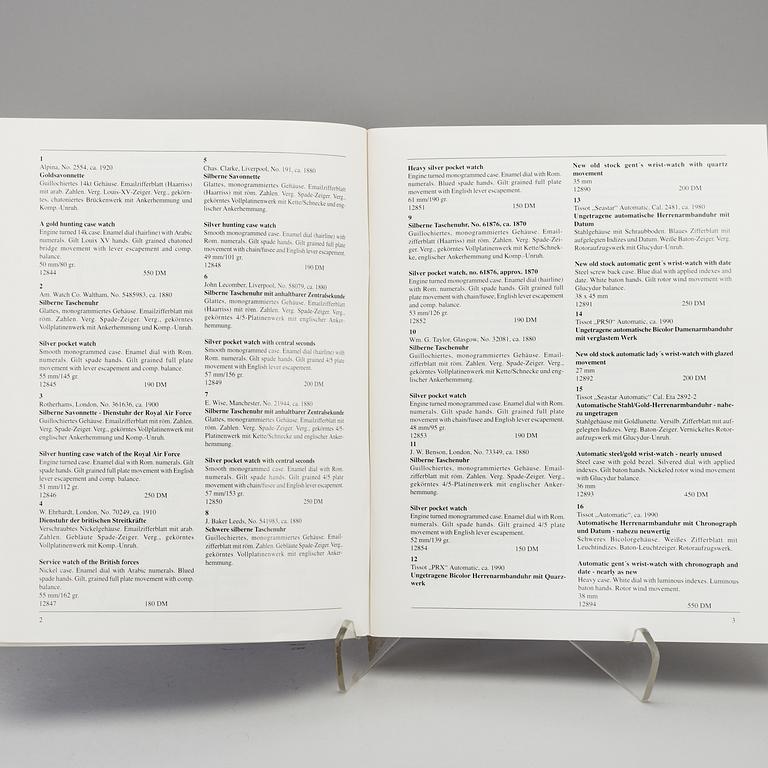 1
Alpina, No. 2554, ca. 1920
Goldsavonnette
Guillochiertes 14kt Gehäuse. Emailzifferblatt (Haarriss)
mit arab. Zahlen. Verg. Louis-XV-Zeiger. Verg., gekörn-
tes, chatoniertes Brückenwerk mit Ankerhemmung und
Komp.-Unruh.
A gold hunting case watch
Engine turned 14k. case. Enamel dial (hairline) with Arabic
numerals. Gilt Louis XV hands. Gilt grained chatoned
bridge movement with lever escapement and comp.
balance.
50 mm/80 gr.
12844 550 DM
2
Am. Watch Co. Waltham, No. 5485983, ca. 1880
Silberne Taschenuhr
Glattes, monogrammiertes Gehäuse. Emailzifferblatt mit
röm. Zahlen. Verg. Spade-Zeiger. Verg., gekörntes
Vollplatinenwerk mit Ankerhemmung und Komp.-Unruh.
Silver pocket watch
Smooth monogrammed case. Enamel dial with Rom.
numerals. Gilt spade hands. Gilt grained full plate
movement with lever escapement and comp. balance.
55 mm/145 gr.
12845 190 DM
3
Rotherhams, London, No. 361636, ca. 1900
Silberne Savonnette - Dienstuhr der Royal Air Force
Guillochiertes Gehäuse. Emailzifferblatt mit röm. Zahlen.
Verg. Spade-Zeiger. Verg., gekörntes Vollplatinenwerk mit
englischer Ankerhemmung und Komp.-Unruh.
Silver hunting case watch of the Royal Air Force
Engine turned case. Enamel dial with Rom. numerals. Gilt
spade hands. Gilt grained full plate movement with English
lever escapement and comp. balance.
51 mm/112 gr.
12846 250 DM
4
W. Ehrhardt, London, No. 70249, ca. 1910
Dienstuhr der britischen Streitkräfte
Verschraubtes Nickelgehäuse. Emailzifferblatt mit arab.
Zahlen. Gebläute Spade-Zeiger. Verg., gekörntes
Vollplatinenwerk mit Ankerhemmung und Komp.-Unruh.
Service watch of the British forces
Nickel case. Enamel dial with Arabic numerals. Blued
spade hands. Gilt, grained full plate movement with comp.
balance.
55 mm/162 gr.
12847 180 DM
2
5
Chas. Clarke, Liverpool, No. 191, ca. 1880
Silberne Savonnette
Glattes, monogrammiertes Gehäuse. Emailzifferblatt
(Haarriss) mit röm. Zahlen. Verg. Spade-Zeiger. Verg.,
gekörntes Vollplatinenwerk mit Kette/Schnecke und eng-
lischer Ankerhemmung.
Silver hunting case watch
Smooth monogrammed case. Enamel dial (hairline) with
Rom. numerals. Gilt spade hands. Gilt grained full plate
movement with chain/fusee and English lever escapement.
49 mm/101 gr.
12848 190 DM
6
John Lecomber, Liverpool, No. 58079, ca. 1880
Silberne Taschenuhr mit anhaltbarer Zentralsekunde
Glattes, monogrammiertes Gehäuse. Emailzifferblatt
(Haarriss) mit röm. Zahlen. Verg. Spade-Zeiger. Verg.,
gekörntes 4/5-Platinenwerk mit englischer Anker-
hemmung.
Silver pocket watch with central seconds
Smooth monogrammed case. Enamel dial (hairline) with
Rom. numerals. Gilt spade hands. Gilt grained 4/5 plate
movement with English lever escapement.
57 mm/156 gr.
12849 200 DM
7
E. Wise, Manchester, No. 21944, ca. 1880
Silberne Taschenuhr mit anhaltbarer Zentralsekunde
Glattes, monogrammiertes Gehäuse. Emailzifferblatt mit
röm. Zahlen. Verg. Spade-Zeiger. Verg., gekörntes 4/5-
Platinenwerk mit Kette/Schnecke und englischer Anker-
hemmung.
Silver pocket watch with central seconds
Smooth monogrammed case. Enamel dial with Rom.
numerals. Gilt spade hands. Gilt grained 4/5 plate
movement with chain/fusee and English lever escapement.
57 mm/153 gr.
12850 250 DM
8
J. Baker Leeds, No. 541983, ca. 1880
Schwere silberne Taschenuhr
Guillochiertes, monogrammiertes Gehäuse. Email-
zifferblatt mit röm. Zahlen. Gebläute Spade-Zeiger. Verg.,
gekörntes Vollplatinenwerk mit englischer Anker-
hemmung.
Heavy silver pocket watch
Engine turned monogrammed case. Enamel dial with Rom.
numerals. Blued spade hands. Gilt grained full plate
movement with English lever escapement.
61 mm/190 gr.
12851 150 DM
9
Silberne Taschenuhr, No. 61876, ca. 1870
Guillochiertes, monogrammiertes Gehäuse. Email-
zifferblatt (Haarriss) mit röm. Zahlen. Verg. Spade-Zei-
ger. Verg., gekörntes Vollplatinenwerk mit Kette/Schnek-
ke, englischer Ankerhemmung und Komp.-Unruh.
Silver pocket watch, no. 61876, approx. 1870
Engine turned monogrammed case. Enamel dial (hairline)
with Rom. numerals. Gilt spade hands. Gilt grained full
plate movement with chain/fusee, English lever escapement
and comp. balance.
53 mm/126 gr.
12852 190 DM
10
Wm. G. Taylor, Glasgow, No. 32081, ca. 1880
Silberne Taschenuhr
Guillochiertes, monogrammiertes Gehäuse. Email-
zifferblatt mit röm. Zahlen. Verg. Spade-Zeiger. Verg.,
gekörntes Vollplatinenwerk mit Kette/Schnecke und eng-
lischer Ankerhemmung.
Silver pocket watch
Engine turned monogrammed case. Enamel dial with Rom.
numerals. Gilt spade hands. Gilt grained full plate
movement with chain/fusee and English lever escapement.
48 mm/95 gr.
12853 190 DM
11
J. W. Benson, London, No. 73349, ca. 1880
Silberne Taschenuhr
Guillochiertes, monogrammiertes Gehäuse. Email-
zifferblatt mit röm. Zahlen. Verg. Spade-Zeiger. Verg.,
gekörntes 4/5-Platinenwerk mit englischer Anker-
hemmung.
Silver pocket watch
Engine turned monogrammed case. Enamel dial with Rom.
numerals. Gilt spade hands. Gilt grained 4/5 plate
movement with English lever escapement.
52 mm/139 gr.
12854 150 DM
12
Tissot „PRX“ Automatic, ca. 1990
Ungetragene Bicolor Herrenarmbanduhr mit Quarz-
werk
New old stock gent´s wrist-watch with quartz
movement
35 mm
12890 200 DM
13
Tissot „Seastar“ Automatic, Cal. 2481, ca. 1980
Ungetragene automatische Herrenarmbanduhr mit
Datum
Stahlgehäuse mit Schraubboden. Blaues Zifferblatt mit
aufgelegten Indizes und Datum. Weiße Baton-Zeiger. Verg.
Rotoraufzugswerk mit Glucydur-Unruh.
New old stock automatic gent´s wrist-watch with date
Steel screw back case. Blue dial with applied indexes and
date. White baton hands. Gilt rotor wind movement with
Glucydur balance.
38 x 45 mm
12891 250 DM
14
Tissot „PR50“ Automatic, ca. 1990
Ungetragene automatische Bicolor Damenarmbanduhr
mit verglastem Werk
New old stock automatic lady´s wrist-watch with glazed
movement
27 mm
12892 200 DM
15
Tissot „Seastar Automatic“ Cal. Eta 2892-2
Automatische Stahl/Gold-Herrenarmbanduhr - nahe-
zu ungetragen
Stahlgehäuse mit Goldlunette. Versilb. Zifferblatt mit auf-
gelegten Indizes. Verg. Baton-Zeiger. Vernickeltes Rotor-
aufzugswerk mit Glucydur-Unruh.
Automatic steel/gold wrist-watch - nearly unused
Steel case with gold bezel. Silvered dial with applied
indexes. Gilt baton hands. Nickeled rotor wind movement
with Glucydur balance.
36 mm
12893 450 DM
16
Tissot „Automatic“, ca. 1990
Automatische Herrenarmbanduhr mit Chronograph
und Datum - nahezu neuwertig
Schweres Bicolorgehäuse. Weißes Zifferblatt mit
Leuchtindizes. Baton-Leuchtzeiger. Rotoraufzugswerk.
Automatic gent´s wrist-watch with chronograph and
date - nearly as new
Heavy case. White dial with luminous indexes. Luminous
baton hands. Rotor wind movement.
38 mm
12894 550 DM
3